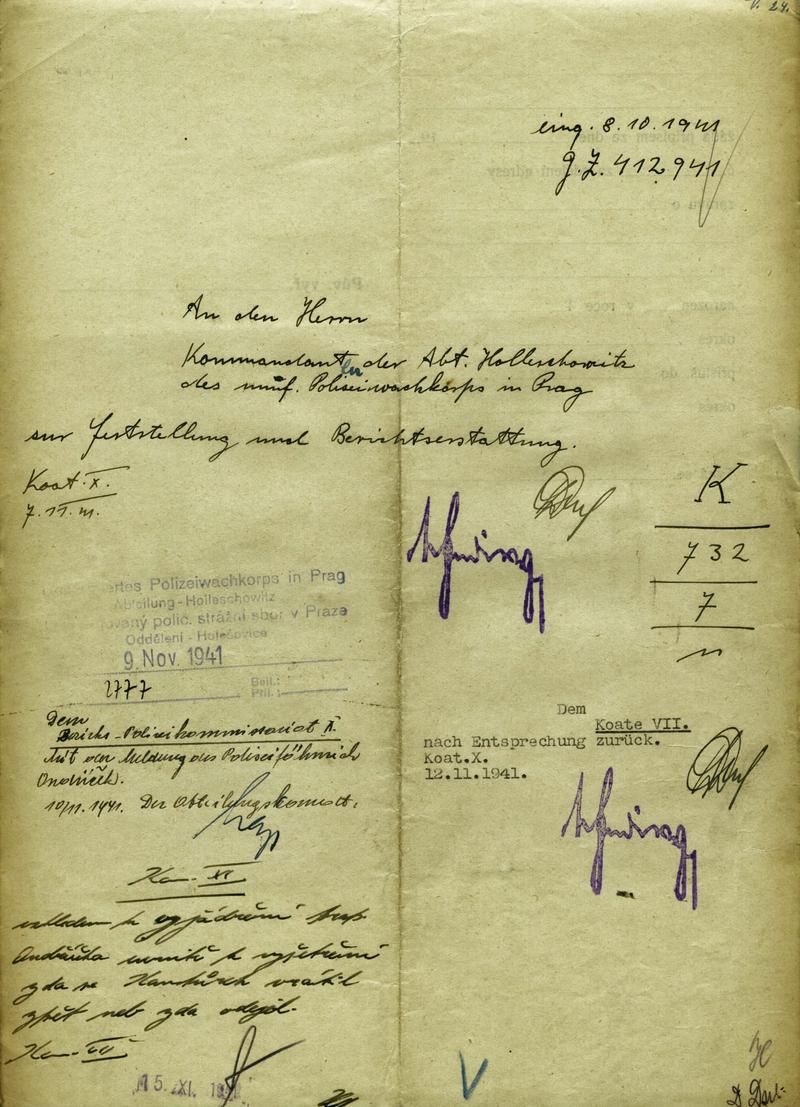 V. 24.
eing. 8.10.1941
g.Z. 412.941
An den Herrn
Kommandanten der Abt. Holleschowitz
des unif. Polizeiwachkorps in Prag
zur Feststellung und Berichtserstattung.
Koat. X.
7.11.
K
732
7
ertes Polizeiwachkorps in Prag
Abteilung-Holleschowitz
ovaný polic. strážní sbor v Praze
Oddělení - Holešovice
9. Nov. 1941
2777
Beil.:
Příl.:
Dem
Bezirks-Polizeikommissariat X.
Mit der Meldung des Polizeifähnrich
Ondříček.
10/11. 1941. Der Abteilungskomdt.
Dem
Koate VII.
nach Entsprechung zurück.
Koat.X.
12.11.1941.
Kom. XI
vzhledem k vyjádření
k vyšetření
zda se vrátil
zpět neb zda odejel.
Kom. VII
15. XI. 1941